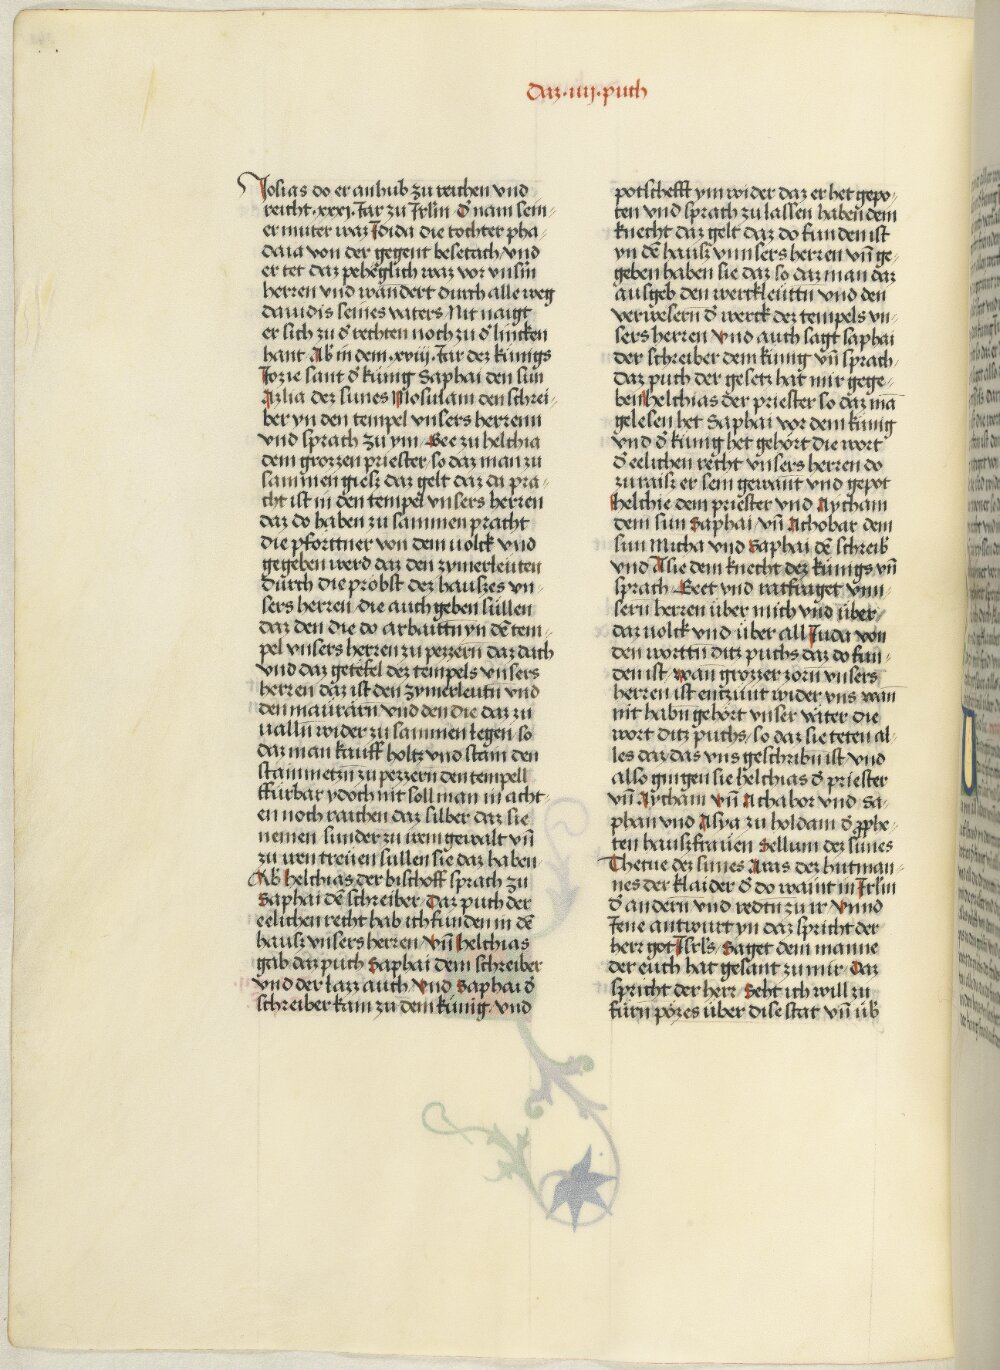 Daz·iiij·puch
Josias do er anhub zu reichen vnd
reicht·xxxi·Jar zu Jrlm̄ d̕ nam sein-
er muter waz Jdida die tochter pha-
daia von der gegent besekath/vnd
er tet daz pehēglich waz vor vnsm̄
herren vnd wandert durch alle weg
dauidis seines vaters Nit naigt
er sich zu d̕ rechten noch zu d̕ lincken
hant Ab̕ in dem·xviij·Jar dez künigs
Jozie sant d̕ künig Saphai den sün
Azlia dez sunes Mosulam den schrei-
ber yn den tempel vnsers herrenn
vnd sprach zu ym Gee zu helchia
dem grozzen priester/so daz man zu
sammen giesz daz gelt daz da pra-
cht ist in den tempel vnsers herren
daz do haben zu sammen pracht
die pforttner von dem uolck vnd
gegeben werd daz den zymerleuten
durch die pröbst dez hauszes vn-
sers herren die auch geben süllen
daz den die do arbaittn yn dē tem-
pel vnsers herzen zu pezzern daz dach
vnd daz getefel dez tempels vnsers
herzen daz ist den zymerleutn vnd
den maurarn vnd den die daz zu
uallñ wider zu sammen legen so
daz man kauff holtz vnd stain den
stainmetzn zu pezzern den tempell
ffürbar ydoch nit soll man in acht-
en noch raichen daz silber daz sie
nemen sunder zu irem gewalt vñ
zu iren treüen süllen sie daz haben
Ab̕ helchias der bischoff sprach zu
Saphai dē schreiber Daz puch der
eelichen recht hab ich funden in dē
hausz vnsers herren/vñ helchias
gab daz puch Saphai dem schreiber
vnd der lazz auch/vnd Saphai d̕
schreiber kam zu dem künig/vnd
potschefft ym wider daz er het gepo-
ten vnd sprach zu lassen haben dem
knecht daz gelt daz do funden ist
yn dē hausz vnnsers herzen vñ ge-
geben haben sie daz so daz man daz
ausgeb den werckleüttn vnd den
verwesern d̕ werck dez tempels vn-
sers herren vnd auch sagt saphai
der schreiber dem künig vñ sprach
daz puch der gesetz hat mir gege-
ben helchias der priester so daz mā
gelesen het Saphai vor dem künig
vnd d̕ künig het gehört die wort
d̕ eelichen recht vnsers herren do
zuraisz er sein gewant vnd gepot
helchie dem priester vnd Aycham
dem sun Saphai vñ Achobar dem
sun Micha vnd Saphai dē schreib̕
vnd Asie dem knecht dez künigs vñ
sprach Geet vnd ratfraget vnn-
sern herren über mich vnd über
daz uolck vnd über all Juda von
den worttn ditz puchs daz do fun-
den ist wan grozzer zorn vnsers
herzen ist entzünt wider vns wan
nit habn gehört vnser väter die
wort ditz puchs/so daz sie teten al-
les daz das vns geschribñ ist vnd
also gingen sie helchias d̕ priester
vñ Aycham vñ Achabor vnd Sa-
phan vnd Asya zu holdam d̕ pphe-
ten hauszfrauen Sellum dez sunes
Thecue dez sunes Aras dez hutman-
nes der klaider d̕ do waint in Jrlm̄
d̕ andern vnd redtn zu ir vnnd
Jene antwurt yn daz spricht der
herr got Jsrls Saget dem manne
der euch hat gesant zu mir Daz
spricht der herr Seht ich will zu
fürn pözes über dise stat vñ üb̕